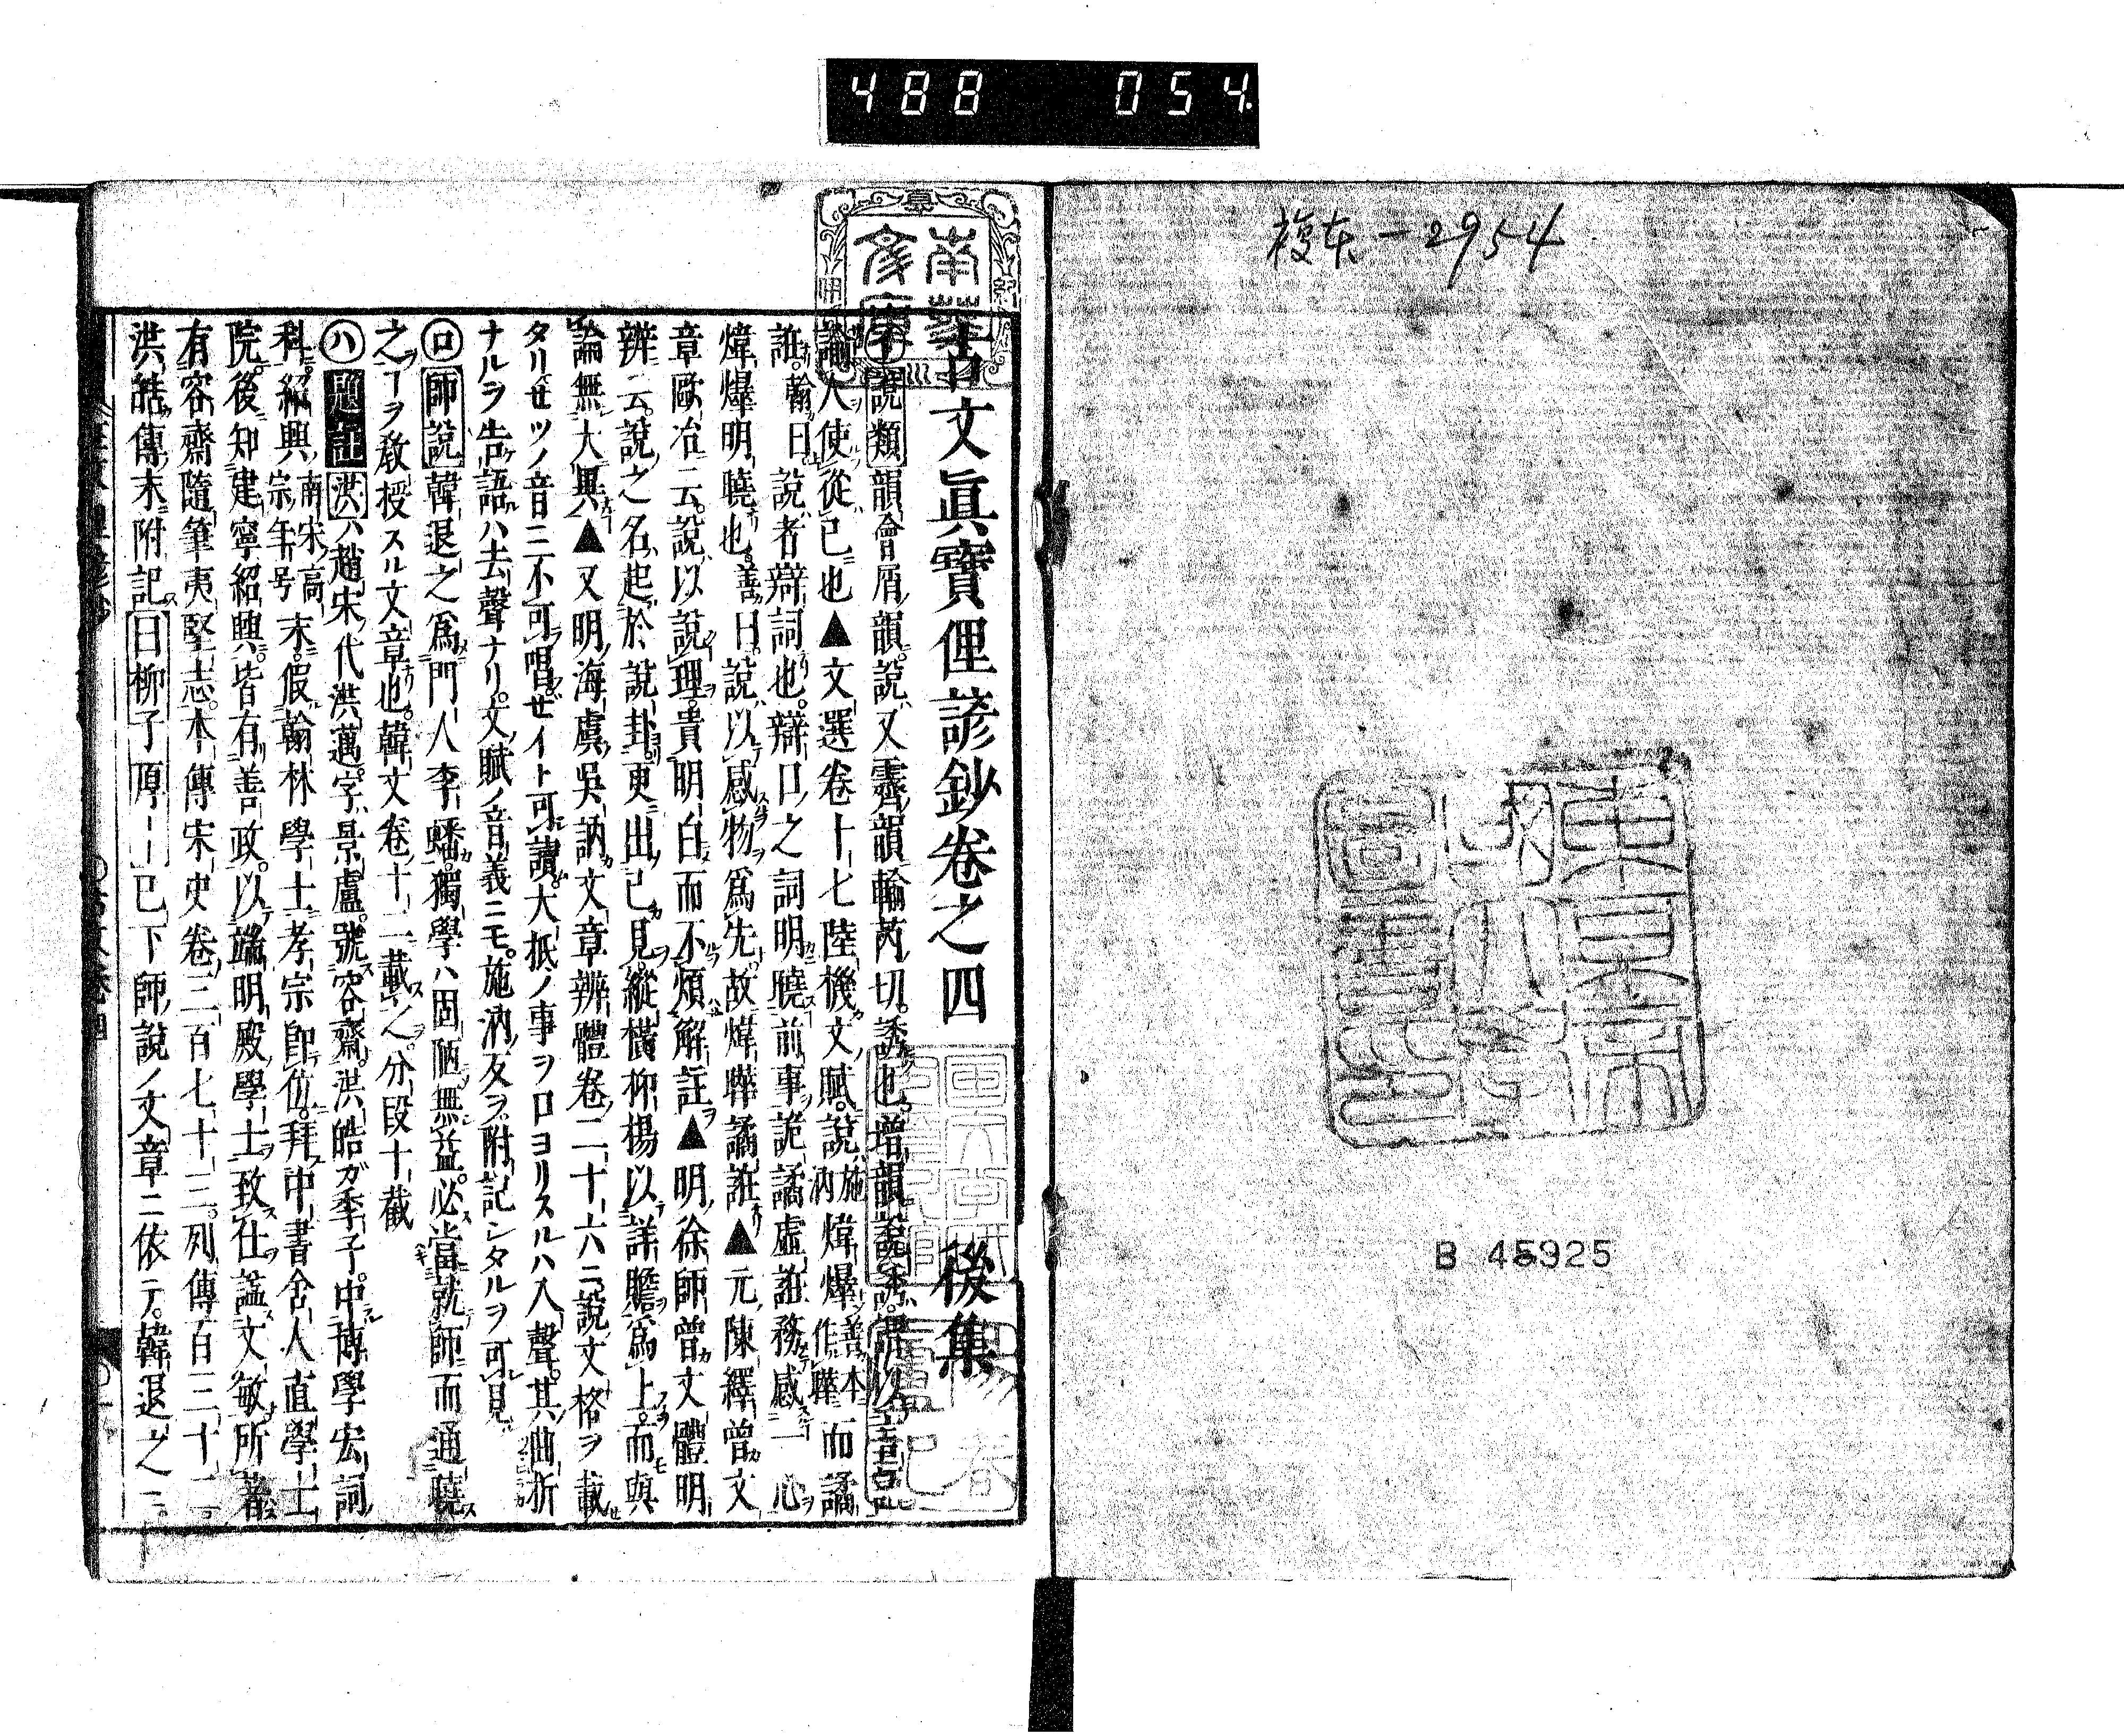 488 054
複本-2954
東京帝
大學
圖書印
B 45925
古文眞寶俚諺鈔卷之四 後集
說類韻會屑韻說又霽韻輸芮切誘也增韻說誘謂以言
諭人使從已也▲文選卷十七陸機文賦說施汭煒爗善本作曄而譎
誑翰曰說者辯詞也辯口之詞明曉前事詭譎虛誑務感心
煒爗明曉也善曰說以感物爲先故煒曄譎誑▲元陳繹曾文
章歐冶云說以說理貴明白而不煩解註▲明徐師曾文體明
辨云說之名起於說卦更出已見縱橫抑揚以詳贍爲上而與
論無大異▲又明海虞吳訥文章辨體卷二十六ニ說文格ヲ載
タリセツノ音ニ不可唱ゼイト可讀大抵ノ事ヲ口ヨリスルハ入聲其曲折
ナルヲ告語ハ去聲ナリ文賦ノ音義ニモ施汭反ヲ附記シタルヲ可見
㋺師說韓退之爲門人李蟠獨學ハ固陋無益必當就師而通曉
之ーヲ敎授スル文章也韓文卷十二載之分段十截
㋩題註洪ハ趙宋ノ代洪邁字景盧號容齋洪皓ガ季子中博學宏詞
科紹興南宋高宗年号末假翰林學士孝宗卽位拜中書舍人直學士
院後知建寧紹興皆有善政以端明殿學士致仕諡文敏所著
有容齋隨筆夷堅志本傳宋史卷三百七十三列傳百三十二
洪皓傳末附記曰柳子厚ーー已下師說ノ文章ニ依テ韓退之ニ